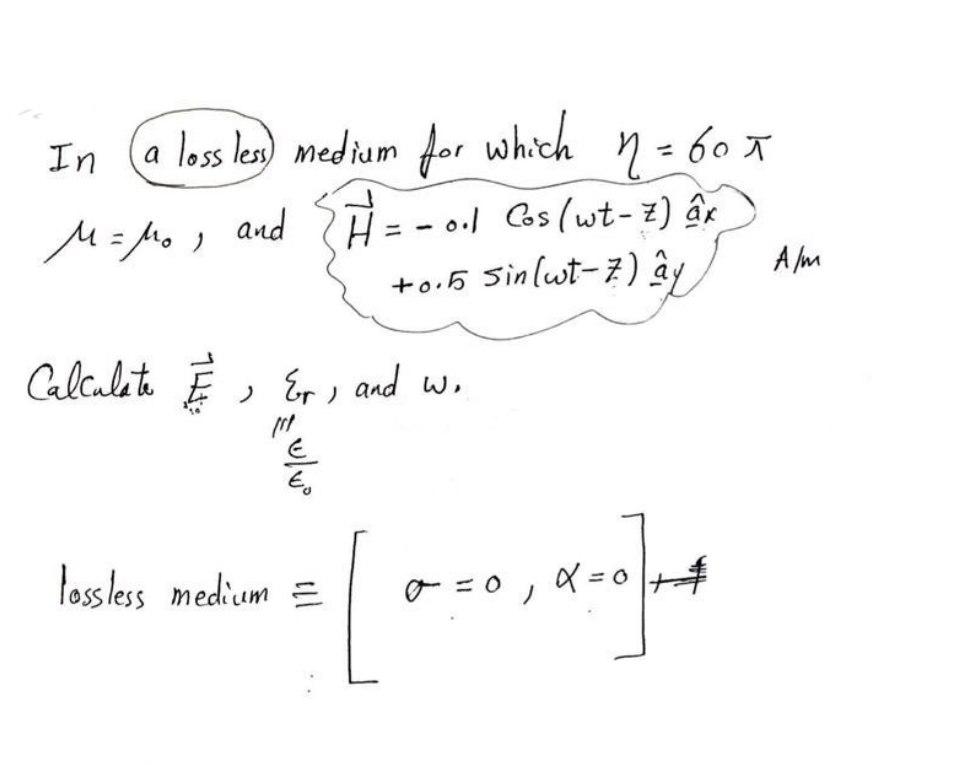 In a lossless medium for which η = 60 π
μ = μ₀ , and H⃗ = - 0.1 Cos(wt - z) âx
+0.5 sin(wt - z) ây A/m
Calculate E⃗ , εr , and w.
ϵ
ϵ₀
lossless medium ≡ [ σ = 0 , α = 0 ]